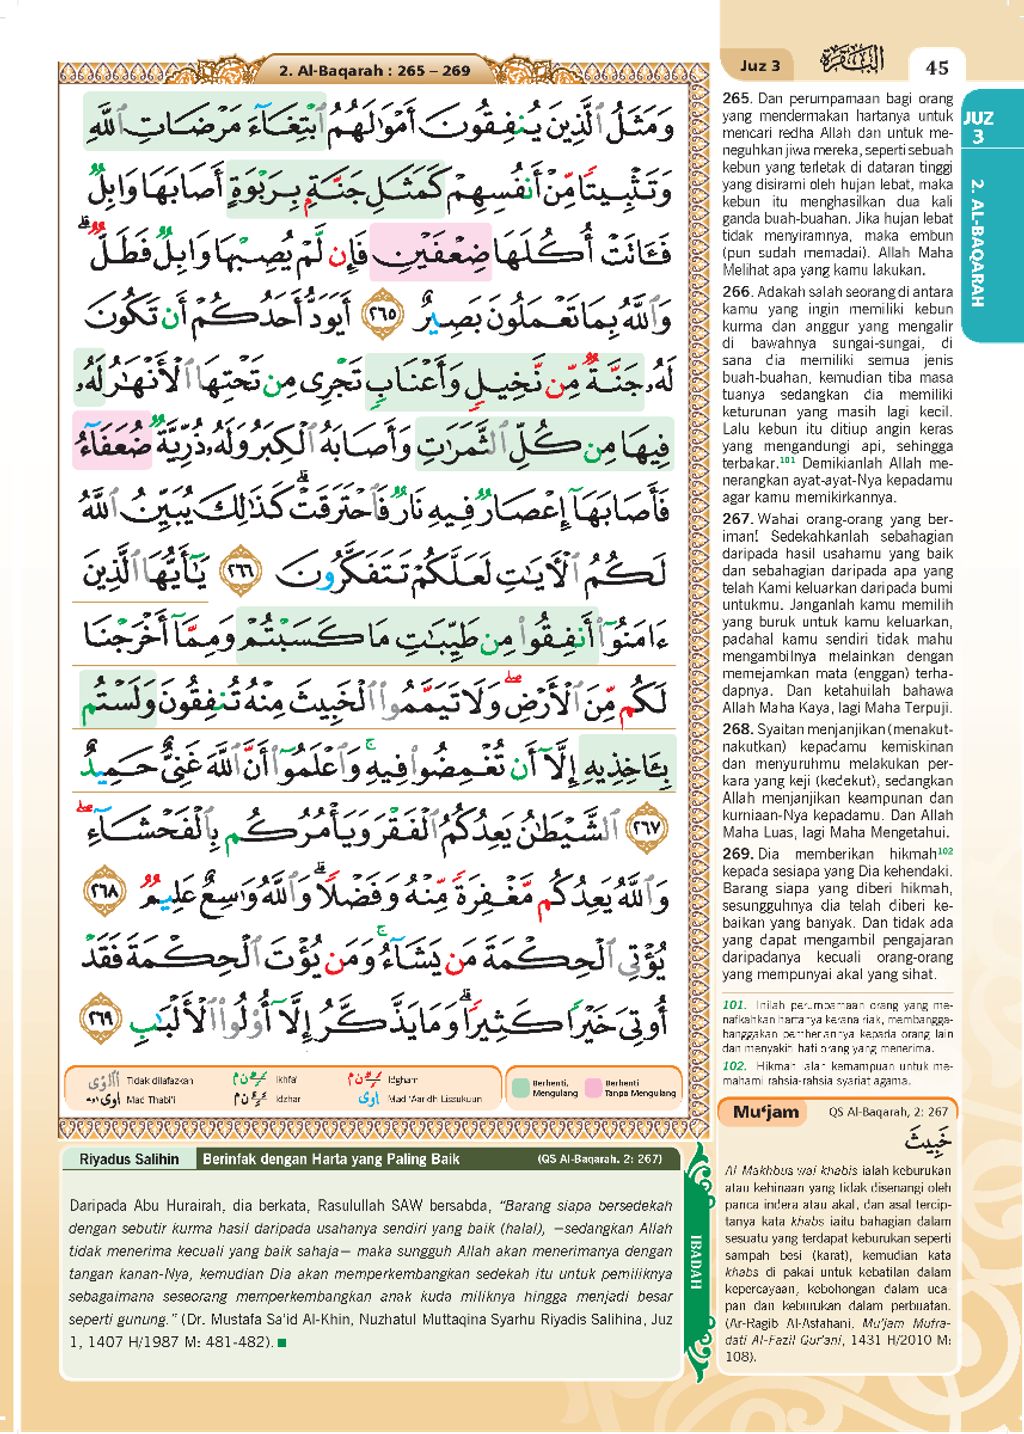 2. Al-Baqarah : 265 – 269
Juz 3
البقرة
45
وَمَثَلُ ٱلَّذِينَ يُنفِقُونَ أَمْوَٰلَهُمُ ٱبْتِغَآءَ مَرْضَاتِ ٱللَّهِ
وَتَثْبِيتًا مِّنْ أَنفُسِهِمْ كَمَثَلِ جَنَّةٍۭ بِرَبْوَةٍ أَصَابَهَا وَابِلٌ
فَـَٔاتَتْ أُكُلَهَا ضِعْفَيْنِ فَإِن لَّمْ يُصِبْهَا وَابِلٌ فَطَلٌّ ۗ
وَٱللَّهُ بِمَا تَعْمَلُونَ بَصِيرٌ ٢٦٥ أَيَوَدُّ أَحَدُكُمْ أَن تَكُونَ
لَهُۥ جَنَّةٌ مِّن نَّخِيلٍ وَأَعْنَابٍ تَجْرِى مِن تَحْتِهَا ٱلْأَنْهَٰرُ لَهُۥ
فِيهَا مِن كُلِّ ٱلثَّمَرَٰتِ وَأَصَابَهُ ٱلْكِبَرُ وَلَهُۥ ذُرِّيَّةٌ ضُعَفَآءُ
فَأَصَابَهَآ إِعْصَارٌ فِيهِ نَارٌ فَٱحْتَرَقَتْ ۗ كَذَٰلِكَ يُبَيِّنُ ٱللَّهُ
لَكُمُ ٱلْـَٔايَٰتِ لَعَلَّكُمْ تَتَفَكَّرُونَ ٢٦٦ يَٰٓأَيُّهَا ٱلَّذِينَ
ءَامَنُوٓا۟ أَنفِقُوا۟ مِن طَيِّبَٰتِ مَا كَسَبْتُمْ وَمِمَّآ أَخْرَجْنَا
لَكُم مِّنَ ٱلْأَرْضِ ۖ وَلَا تَيَمَّمُوا۟ ٱلْخَبِيثَ مِنْهُ تُنفِقُونَ وَلَسْتُم
بِـَٔاخِذِيهِ إِلَّآ أَن تُغْمِضُوا۟ فِيهِ ۚ وَٱعْلَمُوٓا۟ أَنَّ ٱللَّهَ غَنِىٌّ حَمِيدٌ
٢٦٧ ٱلشَّيْطَٰنُ يَعِدُكُمُ ٱلْفَقْرَ وَيَأْمُرُكُم بِٱلْفَحْشَآءِ ۖ
وَٱللَّهُ يَعِدُكُم مَّغْفِرَةً مِّنْهُ وَفَضْلًا ۗ وَٱللَّهُ وَٰسِعٌ عَلِيمٌ ٢٦٨
يُؤْتِى ٱلْحِكْمَةَ مَن يَشَآءُ ۚ وَمَن يُؤْتَ ٱلْحِكْمَةَ فَقَدْ
أُوتِىَ خَيْرًا كَثِيرًا ۗ وَمَا يَذَّكَّرُ إِلَّآ أُو۟لُوا۟ ٱلْأَلْبَٰبِ ٢٦٩
Tidak dilafazkan
Ikhfa'
Idgham
Mad Thabi'i
Idzhar
Mad 'Aaridh Lissukuun
Berhenti,
Mengulang
Berhenti
Tanpa Mengulang
265. Dan perumpamaan bagi orang
yang mendermakan hartanya untuk
mencari redha Allah dan untuk me-
neguhkan jiwa mereka, seperti sebuah
kebun yang terletak di dataran tinggi
yang disirami oleh hujan lebat, maka
kebun itu menghasilkan dua kali
ganda buah-buahan. Jika hujan lebat
tidak menyiramnya, maka embun
(pun sudah memadai). Allah Maha
Melihat apa yang kamu lakukan.
266. Adakah salah seorang di antara
kamu yang ingin memiliki kebun
kurma dan anggur yang mengalir
di bawahnya sungai-sungai, di
sana dia memiliki semua jenis
buah-buahan, kemudian tiba masa
tuanya sedangkan dia memiliki
keturunan yang masih lagi kecil.
Lalu kebun itu ditiup angin keras
yang mengandungi api, sehingga
terbakar.101 Demikianlah Allah me-
nerangkan ayat-ayat-Nya kepadamu
agar kamu memikirkannya.
267. Wahai orang-orang yang ber-
iman! Sedekahkanlah sebahagian
daripada hasil usahamu yang baik
dan sebahagian daripada apa yang
telah Kami keluarkan daripada bumi
untukmu. Janganlah kamu memilih
yang buruk untuk kamu keluarkan,
padahal kamu sendiri tidak mahu
mengambilnya melainkan dengan
memejamkan mata (enggan) terha-
dapnya. Dan ketahuilah bahawa
Allah Maha Kaya, lagi Maha Terpuji.
268. Syaitan menjanjikan (menakut-
nakutkan) kepadamu kemiskinan
dan menyuruhmu melakukan per-
kara yang keji (kedekut), sedangkan
Allah menjanjikan keampunan dan
kurniaan-Nya kepadamu. Dan Allah
Maha Luas, lagi Maha Mengetahui.
269. Dia memberikan hikmah102
kepada sesiapa yang Dia kehendaki.
Barang siapa yang diberi hikmah,
sesungguhnya dia telah diberi ke-
baikan yang banyak. Dan tidak ada
yang dapat mengambil pengajaran
daripadanya kecuali orang-orang
yang mempunyai akal yang sihat.
101. Inilah perumpamaan orang yang me-
nafkahkan hartanya kerana riak, membangga-
banggakan pemberiannya kepada orang lain
dan menyakiti hati orang yang menerima.
102. Hikmah ialah kemampuan untuk me-
mahami rahsia-rahsia syariat agama.
JUZ
3
2. AL-BAQARAH
Riyadus Salihin
Berinfak dengan Harta yang Paling Baik
(QS Al-Baqarah, 2: 267)
Daripada Abu Hurairah, dia berkata, Rasulullah SAW bersabda, “Barang siapa bersedekah
dengan sebutir kurma hasil daripada usahanya sendiri yang baik (halal), —sedangkan Allah
tidak menerima kecuali yang baik sahaja— maka sungguh Allah akan menerimanya dengan
tangan kanan-Nya, kemudian Dia akan memperkembangkan sedekah itu untuk pemiliknya
sebagaimana seseorang memperkembangkan anak kuda miliknya hingga menjadi besar
seperti gunung.” (Dr. Mustafa Sa'id Al-Khin, Nuzhatul Muttaqina Syarhu Riyadis Salihina, Juz
1, 1407 H/1987 M: 481-482).
IBADAH
Mu‘jam
QS Al-Baqarah, 2: 267
خَبِيثَ
Al Makhbus wal khabis ialah keburukan
atau kehinaan yang tidak disenangi oleh
panca indera atau akal, dan asal tercip-
tanya kata khabs iaitu bahagian dalam
sesuatu yang terdapat keburukan seperti
sampah besi (karat), kemudian kata
khabs di pakai untuk kebatilan dalam
kepercayaan, kebohongan dalam uca-
pan dan keburukan dalam perbuatan.
(Ar-Ragib Al-Asfahani, Mu'jam Mufra-
dati Al-Fazil Qur'ani, 1431 H/2010 M:
108).